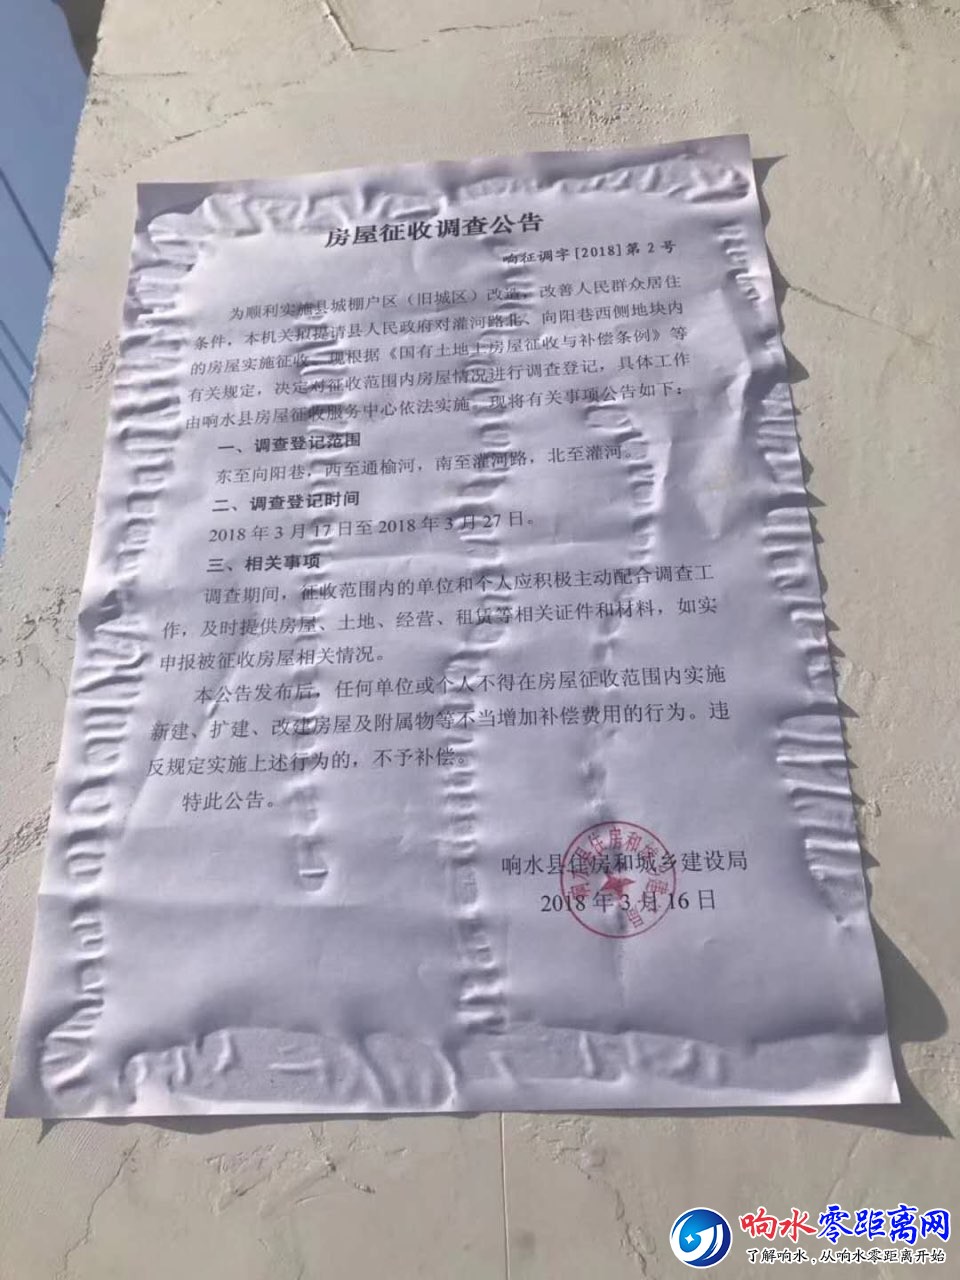 房屋征收调查公告
响征调字[2018]第2号
为顺利实施县城棚户区（旧城区）改造，改善人民群众居住
条件，本机关拟提请县人民政府对灌河路北、向阳巷西侧地块内
的房屋实施征收。现根据《国有土地上房屋征收与补偿条例》等
有关规定，决定对征收范围内房屋情况进行调查登记，具体工作
由响水县房屋征收服务中心依法实施。现将有关事项公告如下：
一、调查登记范围
东至向阳巷，西至通榆河，南至灌河路，北至灌河。
二、调查登记时间
2018年3月17日至2018年3月27日。
三、相关事项
调查期间，征收范围内的单位和个人应积极主动配合调查工
作，及时提供房屋、土地、经营、租赁等相关证件和材料，如实
申报被征收房屋相关情况。
本公告发布后，任何单位或个人不得在房屋征收范围内实施
新建、扩建、改建房屋及附属物等不当增加补偿费用的行为。违
反规定实施上述行为的，不予补偿。
特此公告。
响水县住房和城乡建设局
2018年3月16日
响水零距离网
了解响水，从响水零距离开始